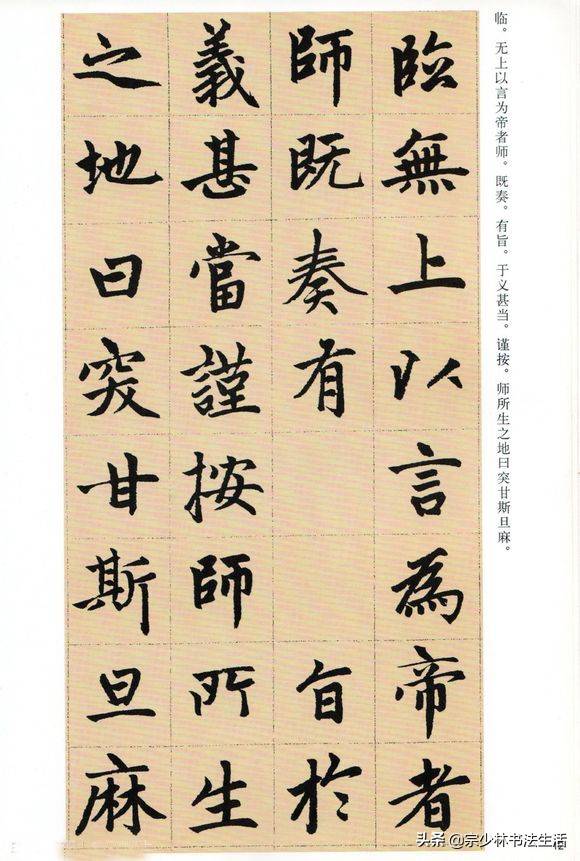 临。无上以言为帝者师。既奏。有旨。于义甚当。谨按。师所生之地曰突甘斯旦麻。
臨無上以言為帝者
師既奏有旨於
義甚當謹按師所生
之地曰突甘斯旦麻
头条 @宗少林书法生活